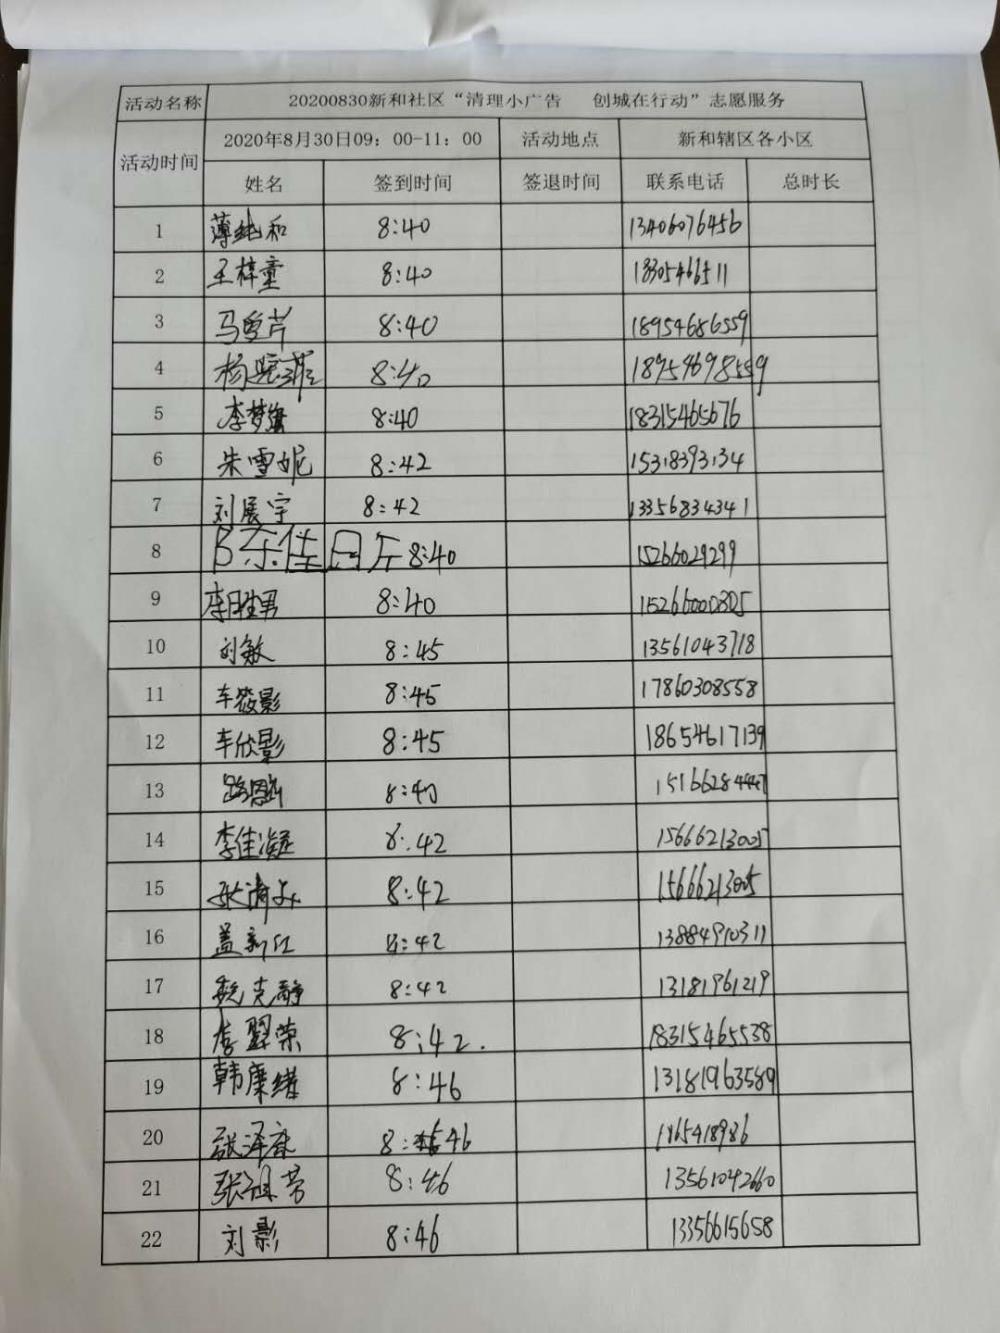 活动名称 20200830新和社区“清理小广告 创城在行动”志愿服务
活动时间 2020年8月30日09：00-11：00 活动地点 新和辖区各小区
姓名 签到时间 签退时间 联系电话 总时长
1 薄纯和 8:40 13406076456
2 王梓童 8:40 18305466511
3 马曾芹 8:40 18954686559
4 杨 8:40 18954698559
5 李梦 8:40 18315465676
6 朱雪妮 8:42 15318393134
7 刘展宇 8:42 13356834341
8 陈佳 8:40 15266029299
9 李胜男 8:40 15266000805
10 刘敏 8:45 13561043718
11 车筱影 8:45 17860308558
12 车欣影 8:45 18654617139
13 8:40
14 李佳凝 8:42 15666213005
15 张清 8:42 15666213005
16 盖新红 8:42 13884910311
17 魏克静 8:42 13181961219
18 李翠荣 8:42. 18315465538
19 韩 8:46 13181963589
20 张泽 8:46
21 张祖芳 8:46 13561042660
22 刘影 8:46 13356615658